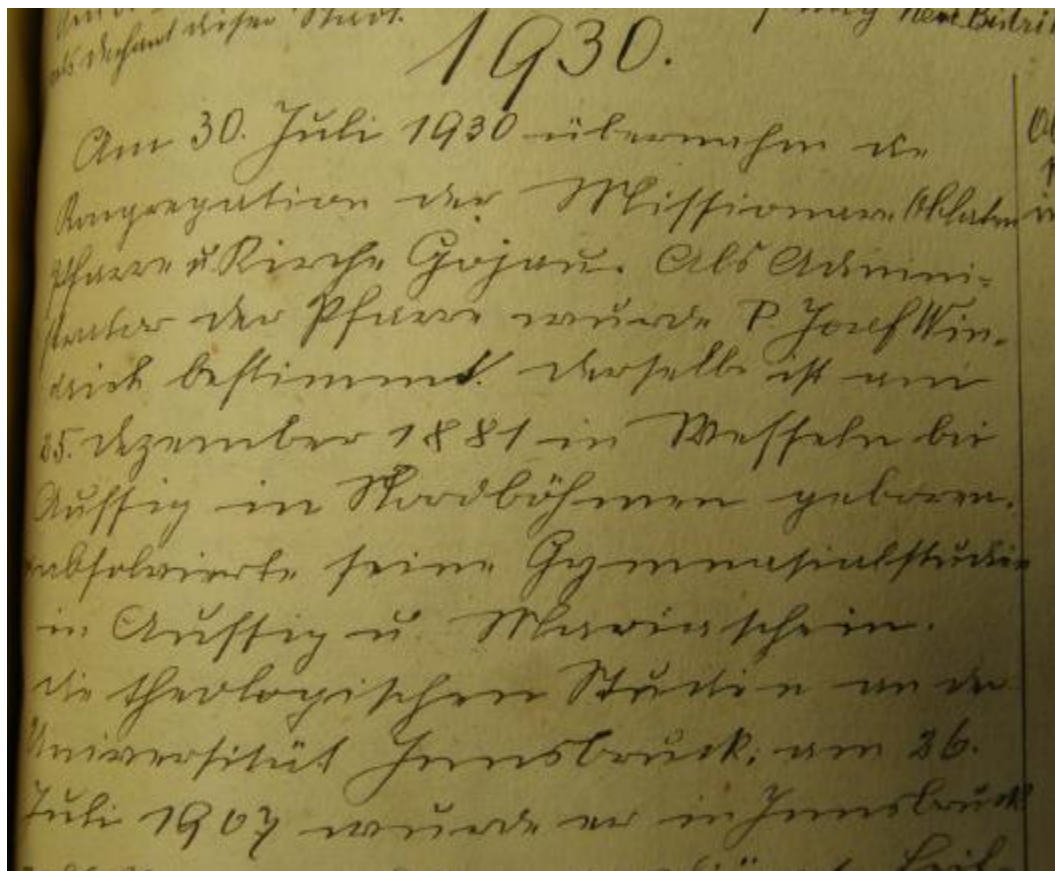 als Dechant dieser Stadt.
Neu Bistri
1930.
Am 30. Juli 1930 übernahm die
Kongregation der Missionare Oblaten
Pfarre u. Kirche Gojau. Als Admini-
strator der Pfarre wurde P. Josef Win-
drich bestimmt. Derselbe ist am
25. Dezember 1881 in Wesseln bei
Aussig in Nordböhmen geboren.
absolvierte seine Gymnasialstudien
in Aussig u. Mariaschein.
die theologischen Studien an der
Universität Innsbruck; am 26.
Juli 1907 wurde er in Innsbruck